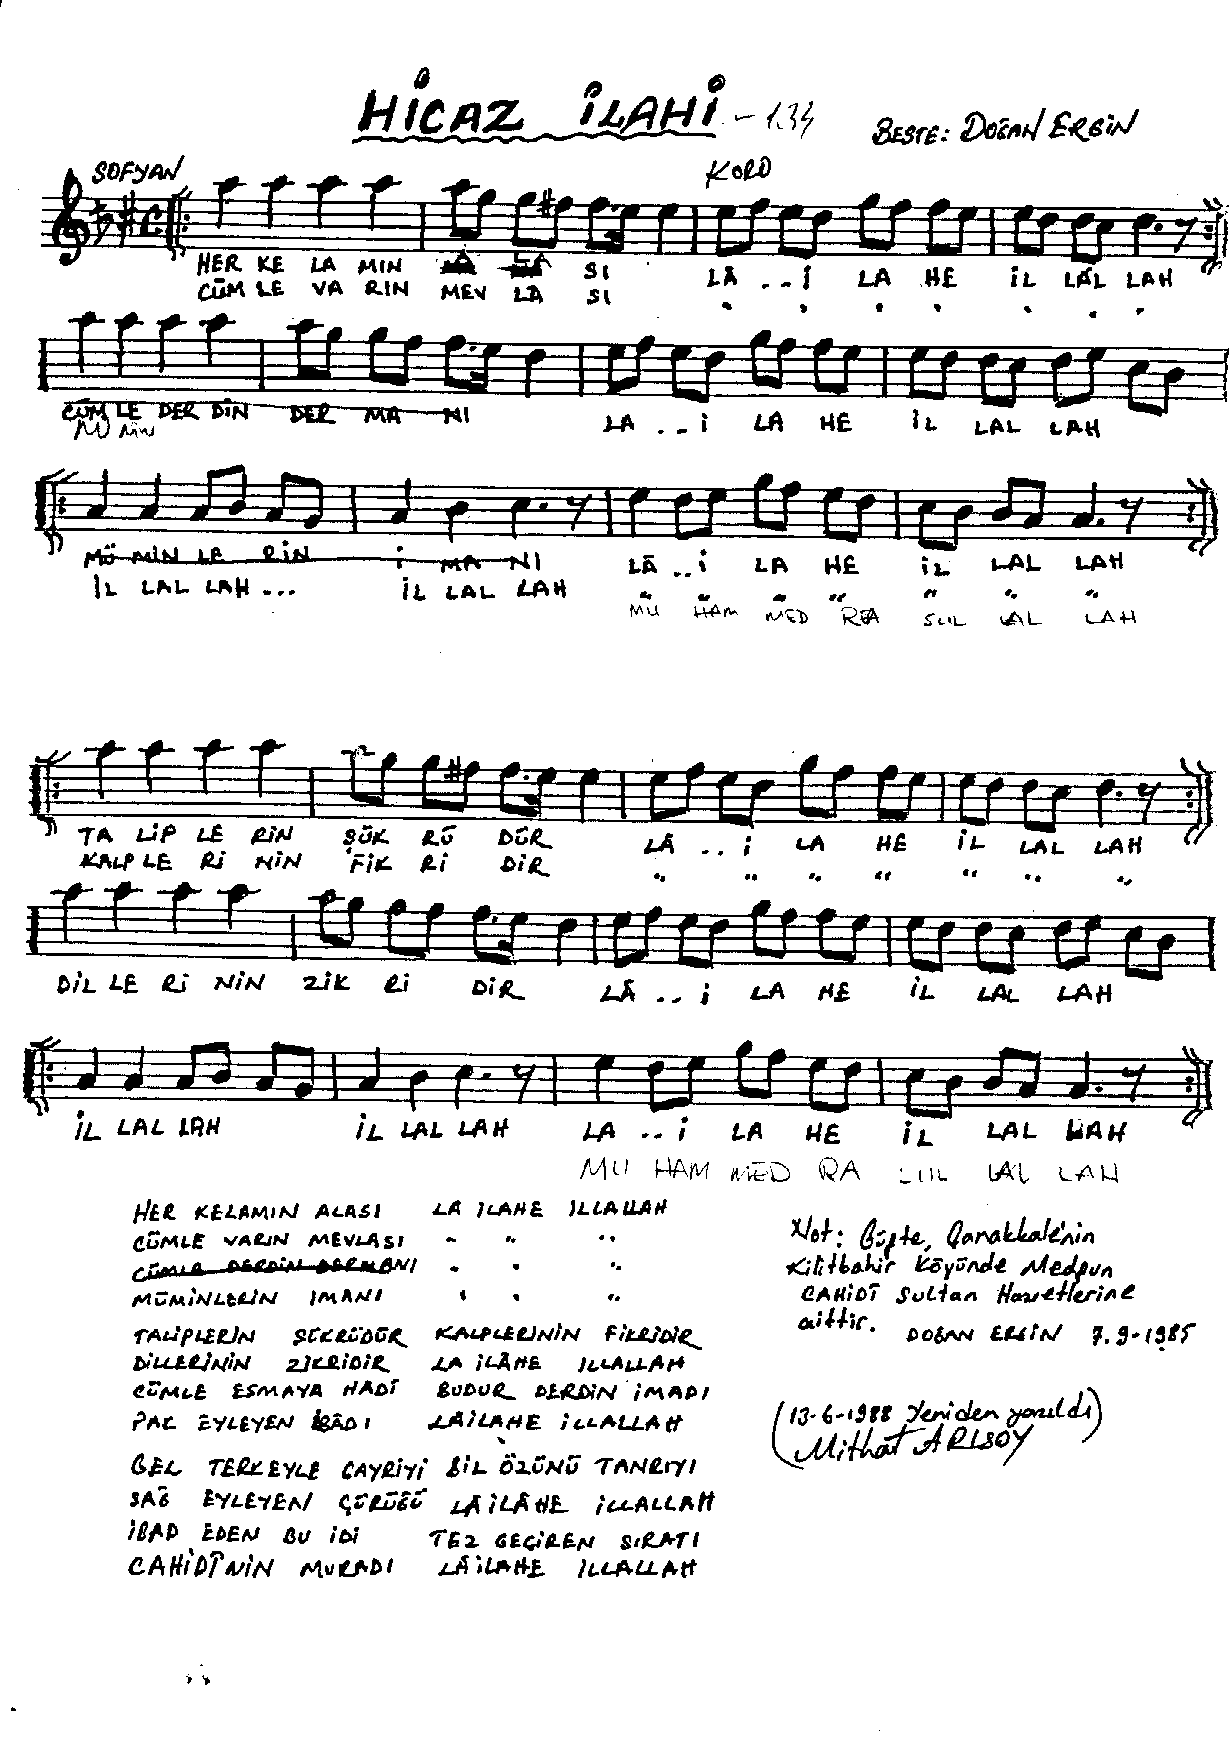 HİCAZ İLAHİ - 134
BESTE: DOĞAN ERGİN
SOFYAN
KORO
HER KE LA MIN LA LA SI LÂ . . İ LA HE İL LÂL LAH
CÜM LE VA RIN MEV LA SI " " " " " " "
CÜM LE DER DİN DER MA NI LA . . İ LA HE İL LAL LAH
MÜ MİN
MÜ MİN LE RİN İ MA NI LÂ . . İ LA HE İL LAL LAH
İL LAL LAH ... İL LAL LAH " " " " " " "
MU HAM MED RA SUL LAL LAH
TA LİP LE RİN ŞÜK RÜ DÜR LÂ . . İ LA HE İL LAL LAH
KALP LE Rİ NİN FİK Rİ DİR " " " " " " "
DİL LE Rİ NİN ZİK Rİ DİR LÂ . . İ LA HE İL LAL LAH
İL LAL LAH İL LAL LAH LA . . İ LA HE İL LAL LAH
MU HAM MED RA SUL LAL LAH
HER KELAMIN ALASI LA İLAHE İLLALLAH
CÜMLE VARIN MEVLASI " " "
CÜMLE DERDİN DERMANI " " "
MÜMİNLERİN IMANI " " "
TALİPLERİN ŞÜKRÜDÜR KALPLERİNİN FİKRİDİR
DİLLERİNİN ZİKRİDİR LA İLÂHE İLLALLAH
CÜMLE ESMAYA HADÎ BUDUR DERDİN İMADI
PAK EYLEYEN İBÂDI LÂİLAHE İLLALLAH
GEL TERKEYLE GAYRİYİ BİL ÖZÜNÜ TANRIYI
SAĞ EYLEYEN ÇÜRÜĞÜ LÂİLÂHE İLLALLAH
İBAD EDEN BU İDİ TEZ GEÇİREN SIRATI
CAHİDÎ'NİN MURADI LÂİLAHE İLLALLAH
Not: Güfte, Çanakkale'nin
Kilitbahir Köyünde Medfun
CAHİDÎ Sultan Hazretlerine
aittir. DOĞAN ERGİN 7.9-1985
(13-6-1988 Yeniden yazıldı)
Mithat ARISOY